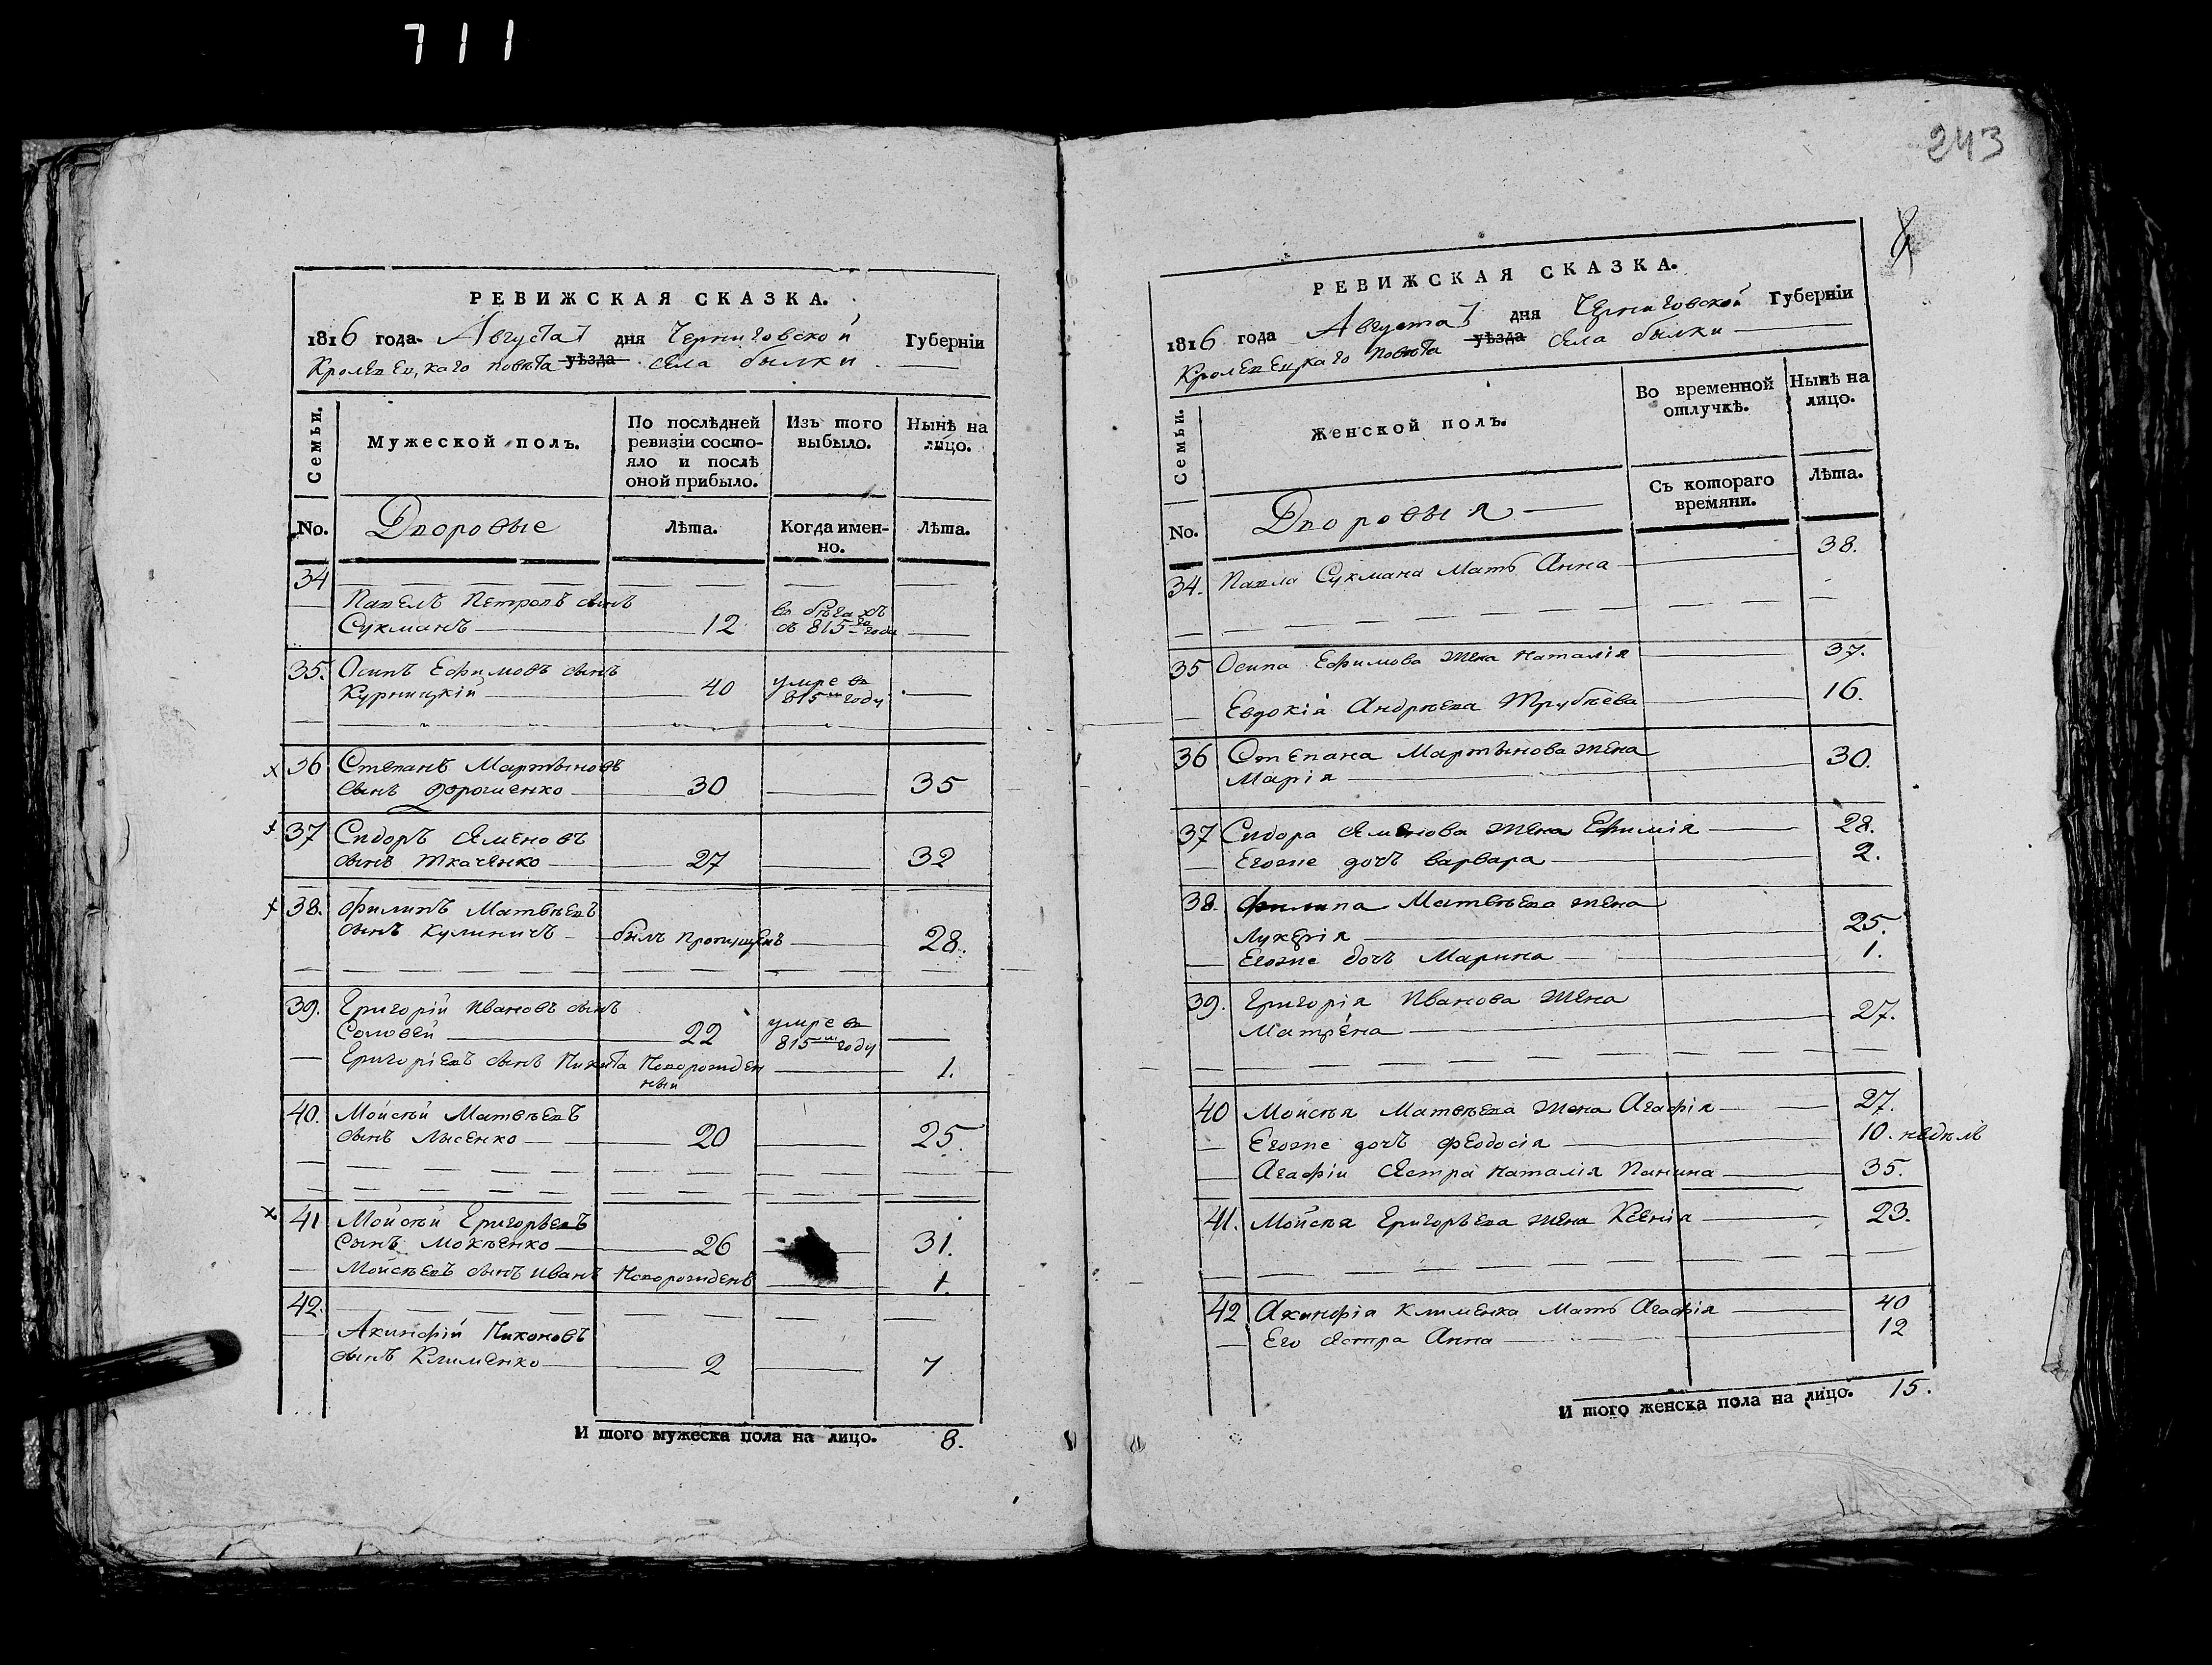 711
243
8
РЕВИЖСКАЯ СКАЗКА.
1816 года. Августа 7 дня Черниговской Губерніи
Кролевецкаго повѣта уѣзда села былки
Семьи.
Мужеской полъ.
По послѣдней ревизіи состояло и послѣ оной прибыло.
Изъ того выбыло.
Нынѣ на лицо.
No.
Дворовые
Лѣта.
Когда именно.
Лѣта.
34
Павелъ Петровъ сынъ
Сукманъ 12 въ бѣгахъ съ 815го года
35. Осипъ Ефимовъ сынъ
Курницкій 40 умре въ 815м году
36 Степанъ Мартыновъ
сынъ Дорошенко 30 35
37 Сидоръ Семеновъ
сынъ Ткаченко 27 32
38. Филипъ Матвѣевъ
сынъ Кулиничъ былъ пропущенъ 28.
39. Григорій Ивановъ сынъ
Соловей 22 умре въ 815м году
Григоріевъ сынъ Никита Новорожденный 1.
40. Мойсѣй Матвѣевъ
сынъ Лысенко 20 25.
41 Мойсѣй Григорьевъ
Сынъ Мокѣенко 26 31.
Мойсѣевъ сынъ Иванъ Новорожденъ 1.
42.
Акинфій Никоновъ
сынъ Клименко 2 7
И того мужеска пола на лицо. 8.
РЕВИЖСКАЯ СКАЗКА.
1816 года Августа 7 дня Черниговской Губерніи
Кролевецкаго повѣта уѣзда села былки
Семьи.
Женской полъ.
Во временной отлучкѣ.
Нынѣ на лицо.
No.
Дворовыя
Съ котораго времяни.
Лѣта.
34. Павла Сукмана Мать Анна 38.
35 Осипа Ефимова жена Наталія 37.
Евдокія Андрѣева Трубѣева 16.
36 Степана Мартынова жена
Марія 30.
37 Сидора Семенова жена Ефимія 28.
Егоже дочь Варвара 2.
38. Филипа Матвѣева жена
Лукерія 25.
Егоже дочь Марина 1.
39. Григорія Иванова жена
Матрена 27.
40 Мойсѣя Матвѣева жена Агафія 27.
Егоже дочъ Феодосія 10. недѣль
Агафіи сестра Наталія Панина 35.
41. Мойсѣя Григорьева жена Ксенія 23.
42 Акинфія Клименка Мать Агафія 40
Его сестра Анна 12
И того женска пола на лицо. 15.